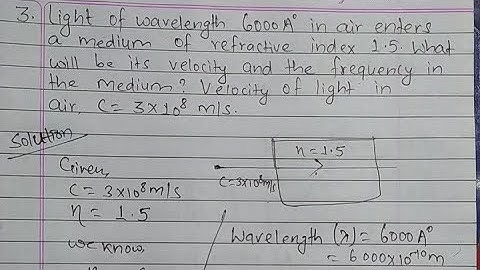 3. Light of wavelength 6000A° in air enters
a medium of refractive index 1.5. What
will be its velocity and the frequency in
the medium? Velocity of light in
air, C = 3×10⁸ m/s.
Solution
Given,
C = 3×10⁸ m/s
η = 1.5
we know
n = 1.5
C=3×10⁸m/s
Wavelength (λ) = 6000A°
= 6000×10⁻¹⁰m